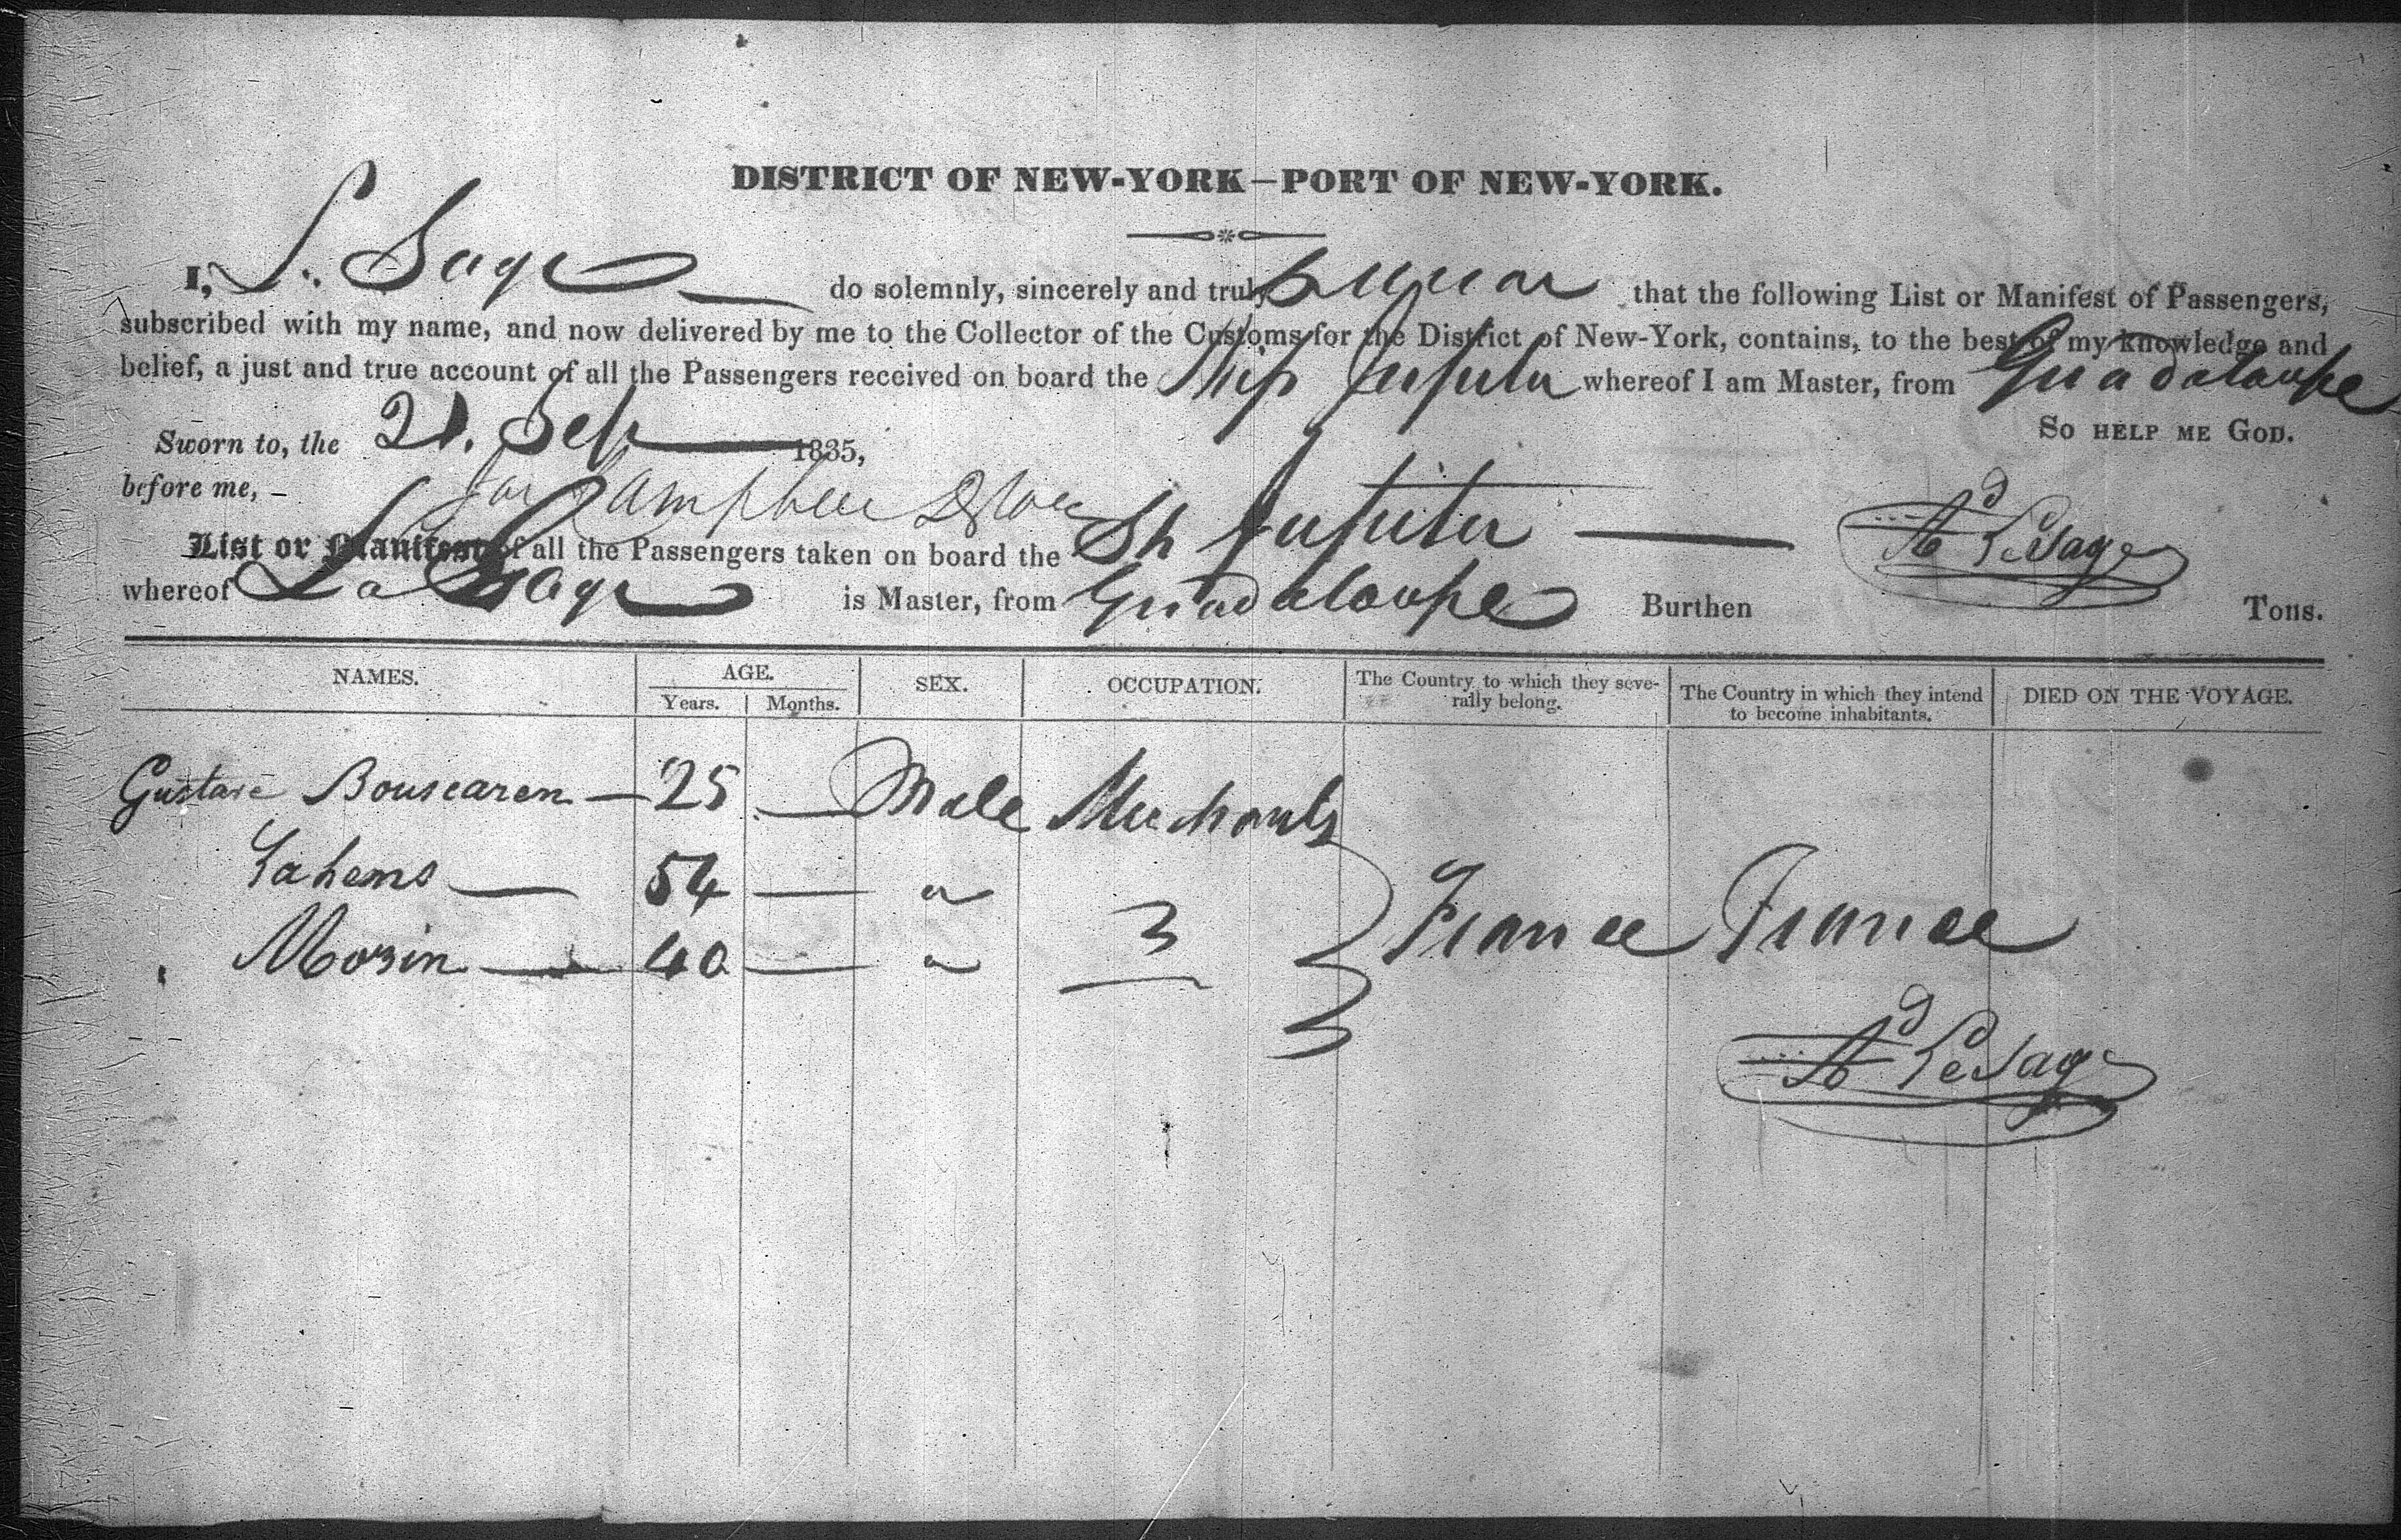 DISTRICT OF NEW-YORK—PORT OF NEW-YORK.
I, L. Sage do solemnly, sincerely and truly Swear that the following List or Manifest of Passengers,
subscribed with my name, and now delivered by me to the Collector of the Customs for the District of New-York, contains, to the best of my knowledge and
belief, a just and true account of all the Passengers received on board the Ship Jupiter whereof I am Master, from Guadaloupe
So help me God.
Sworn to, the 21. Sep 1835,
before me,
List or Manifest of all the Passengers taken on board the Sh Jupiter
Ad LeSage
whereof Le Sage is Master, from Guadaloupe Burthen Tons.
NAMES. AGE. SEX. OCCUPATION. The Country to which they seve- The Country in which they intend DIED ON THE VOYAGE.
Years. Months. rally belong. to become inhabitants.
Gustave Bouscaren — 25 — Male Merchants
Lahens — 54 — "
Mozin — 40 — " 3
France France
Ad LeSage